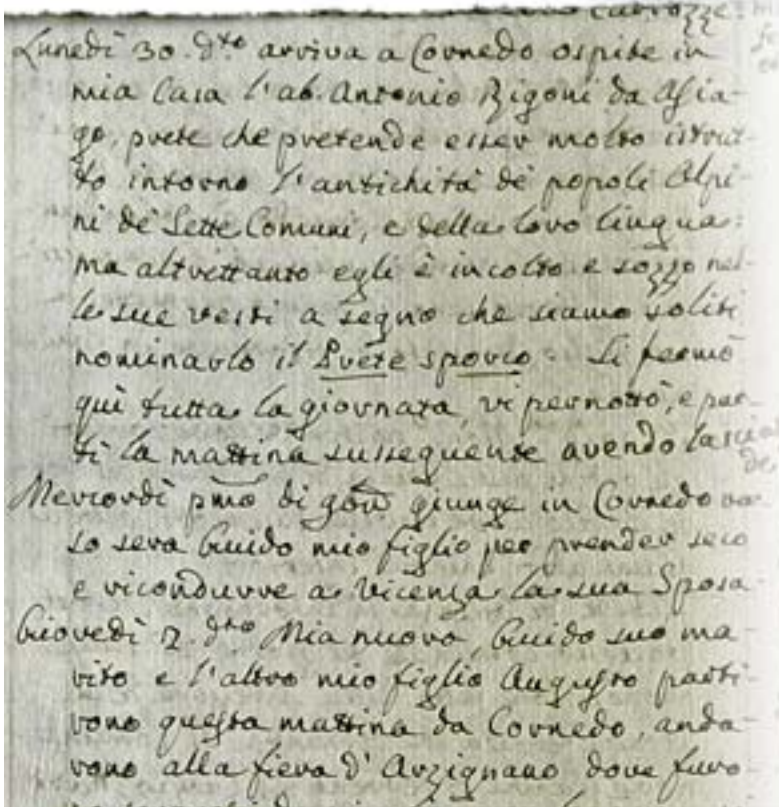 carrozze:
Lunedì 30. d.to arriva a Cornedo ospite in
mia Casa l'ab. Antonio Rigoni da Asia-
go, prete che pretende esser molto istrut-
to intorno l'antichità de' popoli Alpi-
ni de' Sette Comuni, e della loro lingua:
ma altrettanto egli è incolto e sozzo nel-
le sue vesti a segno che siamo soliti
nominarlo il Prete sporco. Si fermò
quì tutta la giornata, vi pernottò, e par-
tì la mattina susseguente avendo lascia
Mercordì p.mo di giunge in Cornedo ver-
so sera Guido mio figlio per prender seco
e ricondurre a Vicenza la sua Sposa
Giovedì 2. d.to Mia nuora, Guido suo ma-
rito e l'altro mio figlio Augusto parti-
rono questa mattina da Cornedo, anda-
rono alla fiera d'Arzignano dove furo-